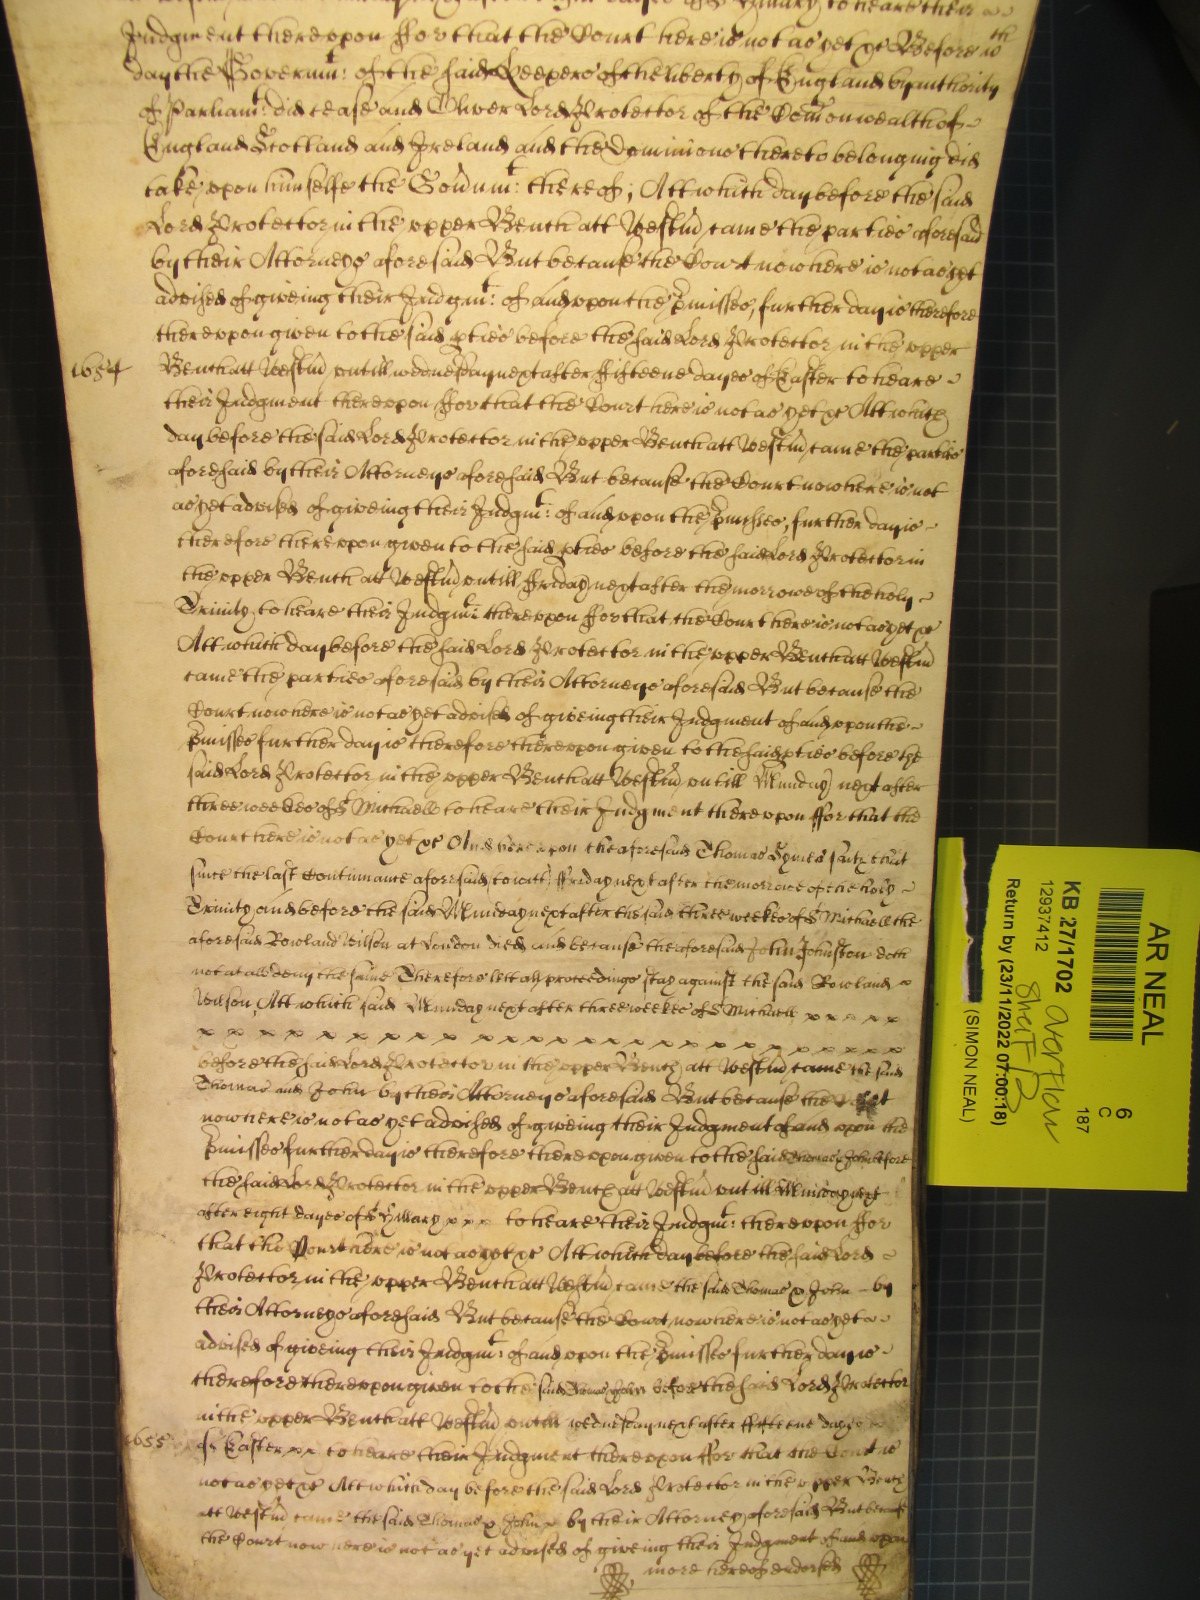 Judgment thereupon ffor that the Court here is not as yet &c Before wch
day the Governmt: of the said Keepers of the liberty of England by authority
of Parliamt: did cease and Oliver Lord Protector of the Comonwealth of
England Scotland and Ireland and the Dominions thereto belonging did
take upon himselfe the Governmt: thereof; Att which day before the said
Lord Protector in the upper Bench att Westm̃ came the parties aforesaid
by their Attorneys aforesaid But because the Court now here is not as yet
advised of giveing their Judgmt: of and upon the p̃misses, further day is therefore
thereupon given to the said pties before the said Lord Protector in the upper
1654
Bench att Westm̃ untill wednesday next after ffifteene dayes of Easter to heare
their Judgment thereupon ffor that the Court here is not as yet &c Att which
day before the said Lord Protector in the upper Bench att Westm̃ came the parties
aforesaid by their Attorneys aforesaid But because the Court now here is not
as yet advised of giveing their Judgmt: of and upon the p̃misses, further day is
therefore thereupon given to the said pties before the said Lord Protector in
the upper Bench att Westm̃ untill ffriday next after the morrowe of the holy
Trinity to heare their Judgmt: thereupon ffor that the Court here is not as yet &c
Att which day before the said Lord Protector in the upper Bench att Westm̃
came the parties aforesaid by their Attorneys aforesaid But because the
Court now here is not as yet advised of giveing their Judgment of and upon the
p̃misses further day is therefore thereupon given to the said pties before the
said Lord Protector in the upper Bench att Westm̃ untill Munday next after
three weekes of St Michaell to heare their Judgment thereupon ffor that the
Court here is not as yet &c And hereupon the aforesaid Thomas Symes saith that
since the last Continuance aforesaid to witt, ffriday next after the morrowe of the holy
Trinity and before the said Munday next after the said three weekes of St Michaell the
aforesaid Rowland Wilson at London died and because the aforesaid John Johnston doth
not at all deny the same Therefore lett all proceedings stay against the said Rowland
Wilson, Att which said Munday next after three weekes of St Michaell
before the said Lord Protector in the upper Bench att Westm̃ came the said
Thomas and John by their Attorneys aforesaid But because the Court
now here is not as yet advised of giveing their Judgment of and upon the
p̃misses further day is therefore thereupon given to the said Thomas & John before
the said Lord Protector in the upper Bench att Westm̃ untill Munday next
after eight dayes of St Hillary to heare their Judgmt: thereupon ffor
that the Court here is not as yet &c Att which day before the said Lord
Protector in the upper Bench att Westm̃ came the said Thomas & John by
their Attorneys aforesaid But because the Court now here is not as yet
advised of giveing their Judgmt: of and upon the p̃misses further day is
therefore thereupon given to the said Thomas & John before the said Lord Protector
in the upper Bench att Westm̃ untill wednesday next after ffifteene dayes
1655
of Easter to heare their Judgment thereupon ffor that the Court is
not as yet &c Att which day before the said Lord Protector in the upper Bench
att Westm̃ came the said Thomas & John by their Attorneys aforesaid But because
the Court now here is not as yet advised of giveing their Judgment of and upon
more hereof endorsed
AR NEAL
6
C
187
KB 27/1702
overflow
Shelf D
12937412
Return by (23/11/2022 07:00:18)
(SIMON NEAL)